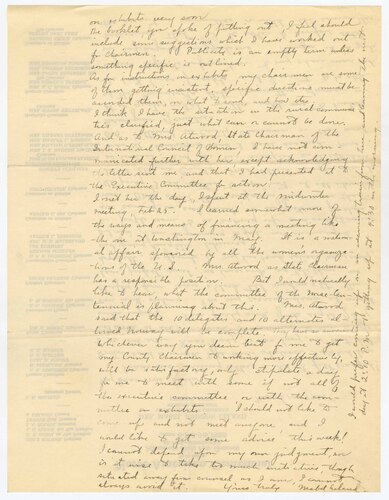 on exhibits very soon
The booklet you spoke of putting out, I feel should
include some suggestions which I have worked out
for Chairmen. Publicity is an empty term unless
something specific is outlined.
As for instructions in exhibits my chairmen are some
of them getting insistent, specific directions must be
accorded them, on what, and how etc.
I think I have the situation in the rural communi-
ties clarified, just what can or cannot be done.
And as to Mrs Atwood, State chairman of the
International Council of Women, I have not com-
municated further with her except acknowledging
the letter sent me and that I had presented it to
the Executive Committee for action
I met her the day I spent at the Midwinter
meeting, Feb 25. I learned somewhat more of
the ways and means of financing a meeting like
the one at Washington in May. It is a nation-
al affair sponsored by all the women's organiza-
tions of the U.S. Mrs Atwood as State Chairman
has a responsible position. But I would naturally
like to know, what the committee of the Mass. Cen-
tennial is planning about this. Mrs. Atwood
said that the 10 delegates and 10 alternates al-
lowed
Whichever way you deem best for me to get
my County Chairmen to working more effectively,
will be satisfactory, only stipulate a day
for me to meet with some if not all of
the executive committee or with the com-
mittee on exhibits. I should not like to
come up and not meet anyone, and I
would like to get some advice this week!
I cannot depend upon my own judgment, nor
is it wise to take too much initiative, though
situated away from counsel as I am, I cannot
always avoid it. Yours truly, Mabel
I would prefer coming up on an evening train from here and leaving the next
day at 2:40 P.M. or getting up at 4:30 in the morning